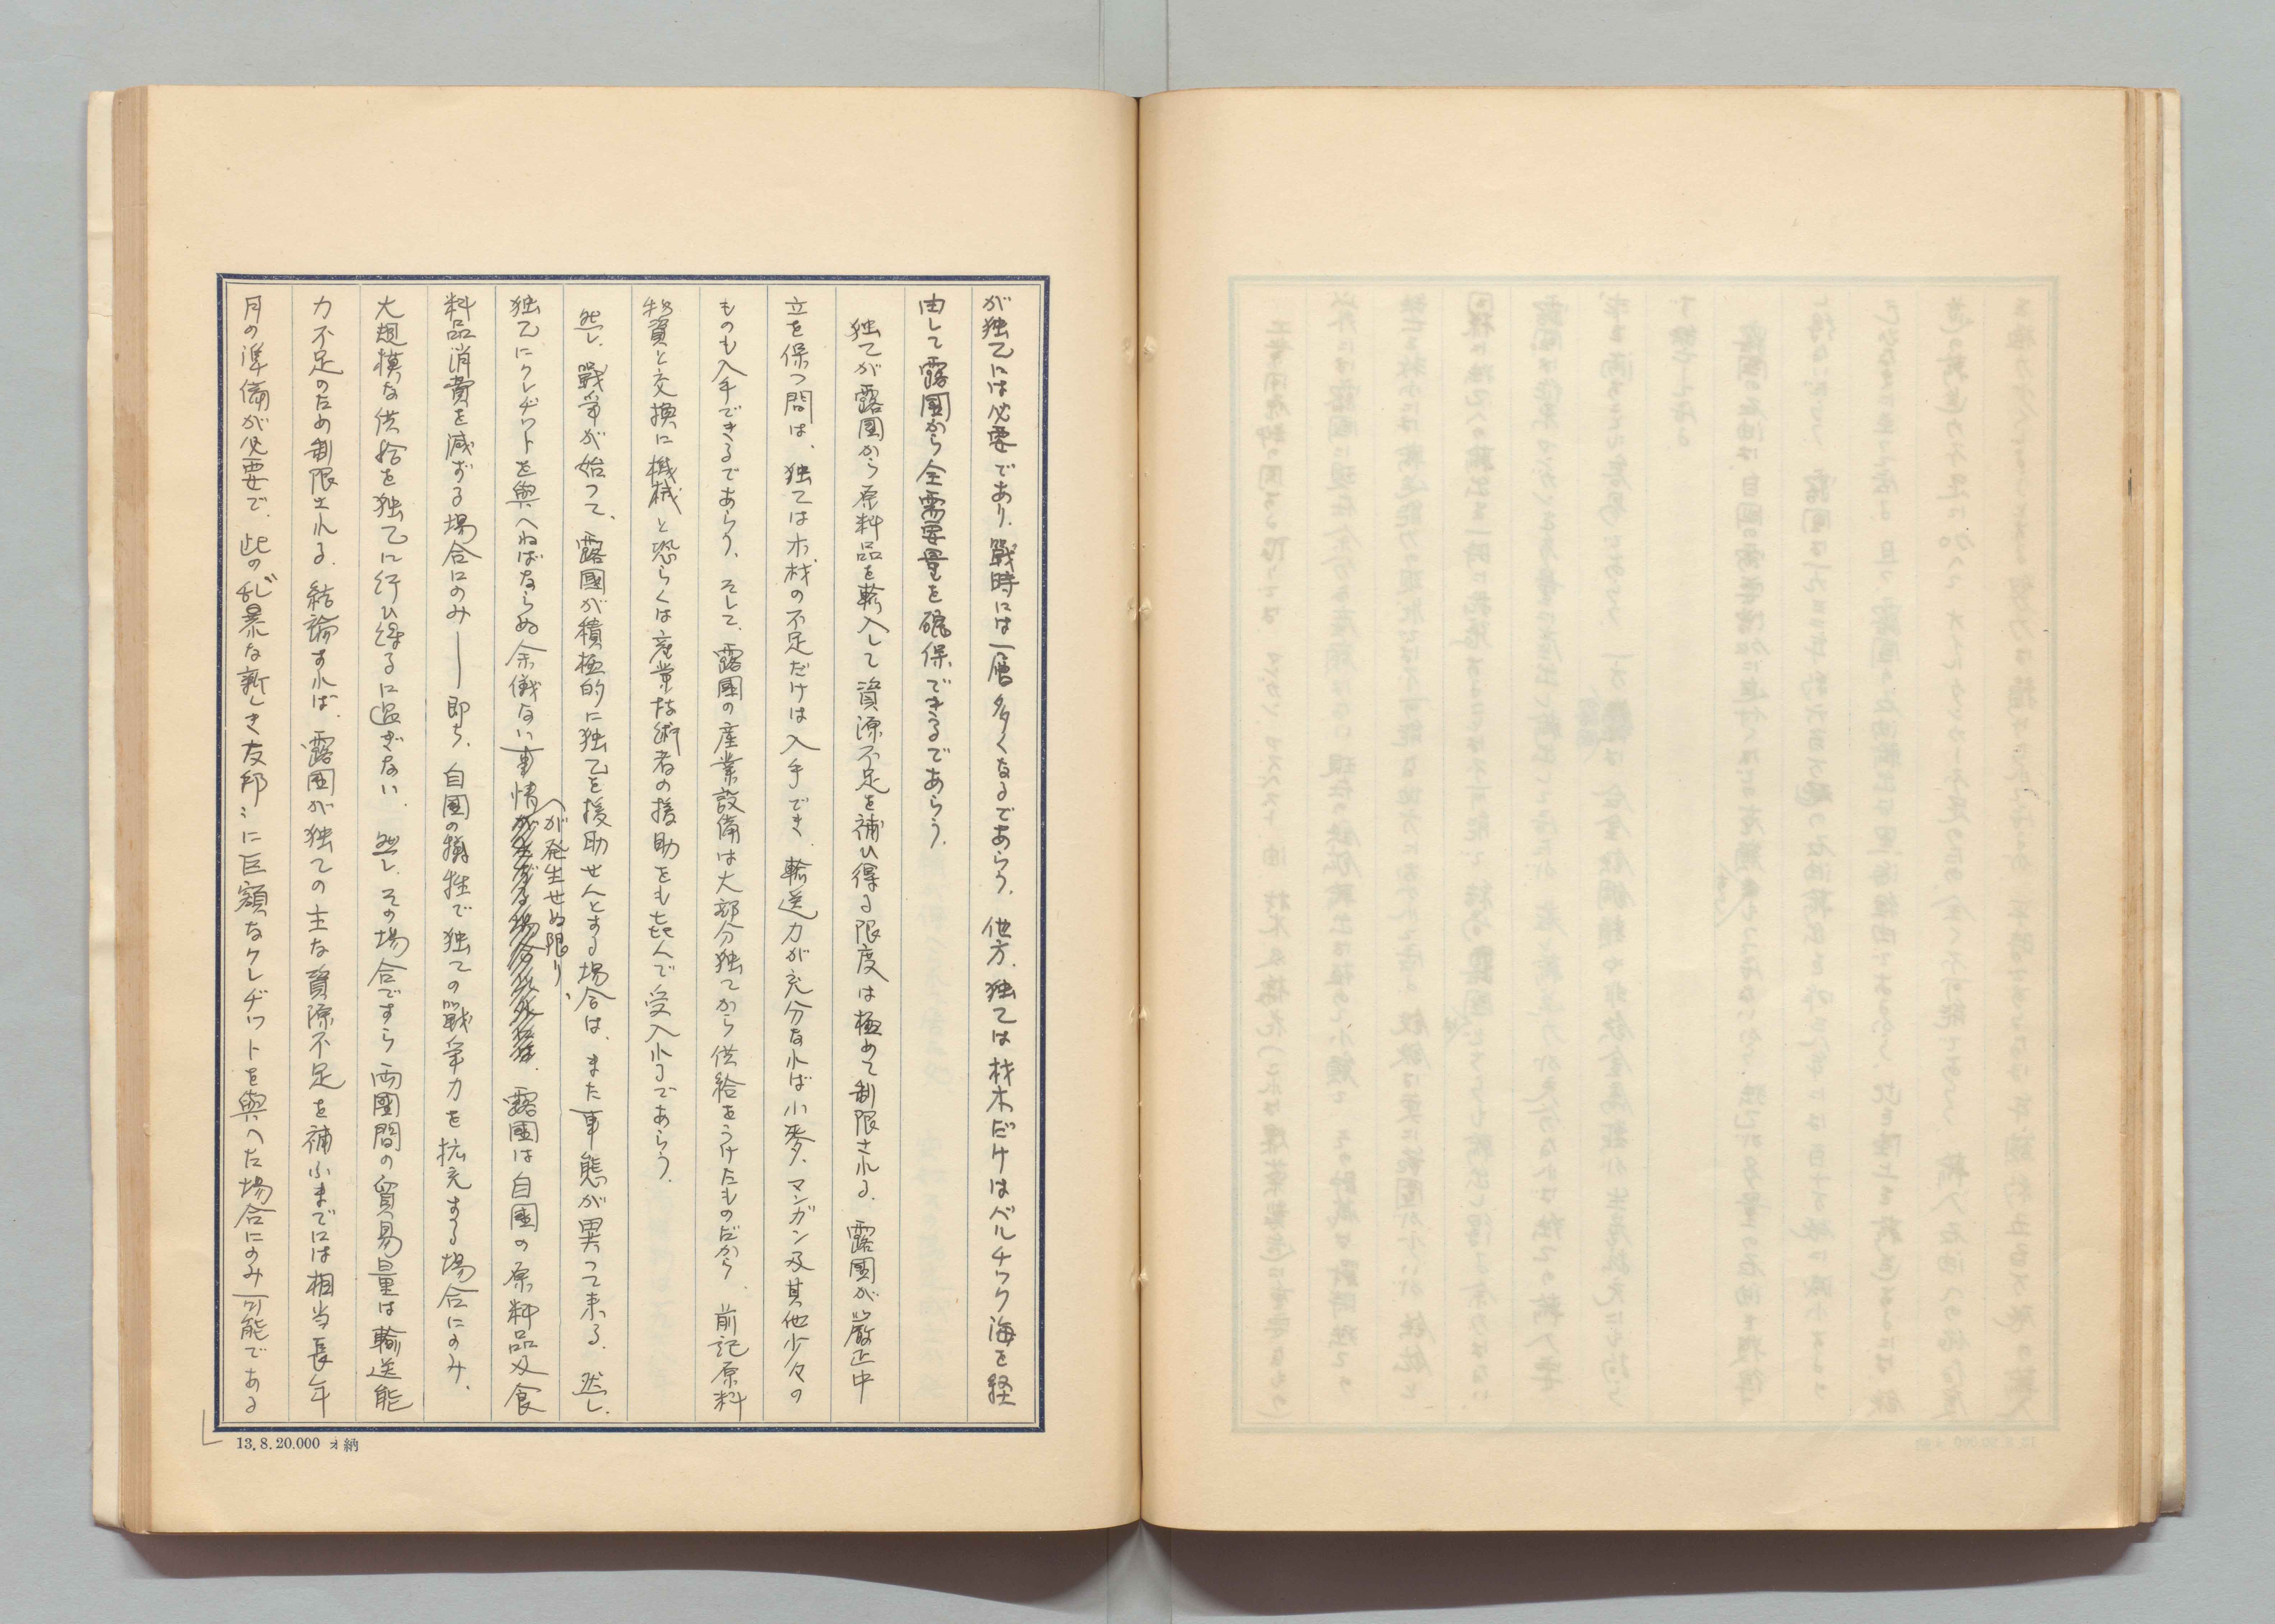 が独乙には必要であり、戰時には一層多くなるであらう。他方、独乙は材木だけはバルチック海を経
由して露國から全需要量を確保できるであらう。
独乙が露國から原料品を輸入して資源不足を補ひ得る限度は極めて制限される。露國が嚴正中
立を保つ間は、独乙は木材の不足だけは入手でき、輸送力が充分なれば小麥、マンガン及其他少々の
ものも入手できるであらう、そして、露國の産業設備は大部分独乙から供給をうけたものだから、前記原料
物資と交換に機械と恐らくは産業技術者の援助をも喜んで受入れるであらう。
然し、戰争が始つて、露國が積極的に独乙を援助せんとする場合は、また事態が異つて来る。然し、
独乙にクレヂットを與へねばならぬ余儀ない事情が発生せぬ限り、露國は自國の原料品及食
料品消費を減ずる場合にのみ――即ち、自國の犠牲で独乙の戰争力を拡充する場合にのみ、
大規模な供給を独乙に行ひ得るに過ぎない。然し、その場合ですら両國間の貿易量は輸送能
力不足のため制限される。結論すれば、露國が独乙の主な資源不足を補ふまでには相当長年
月の準備が必要で、此の乱暴な新しき友邦〻に巨額なクレヂットを與へた場合にのみ可能である
13.8.20.000 オ納